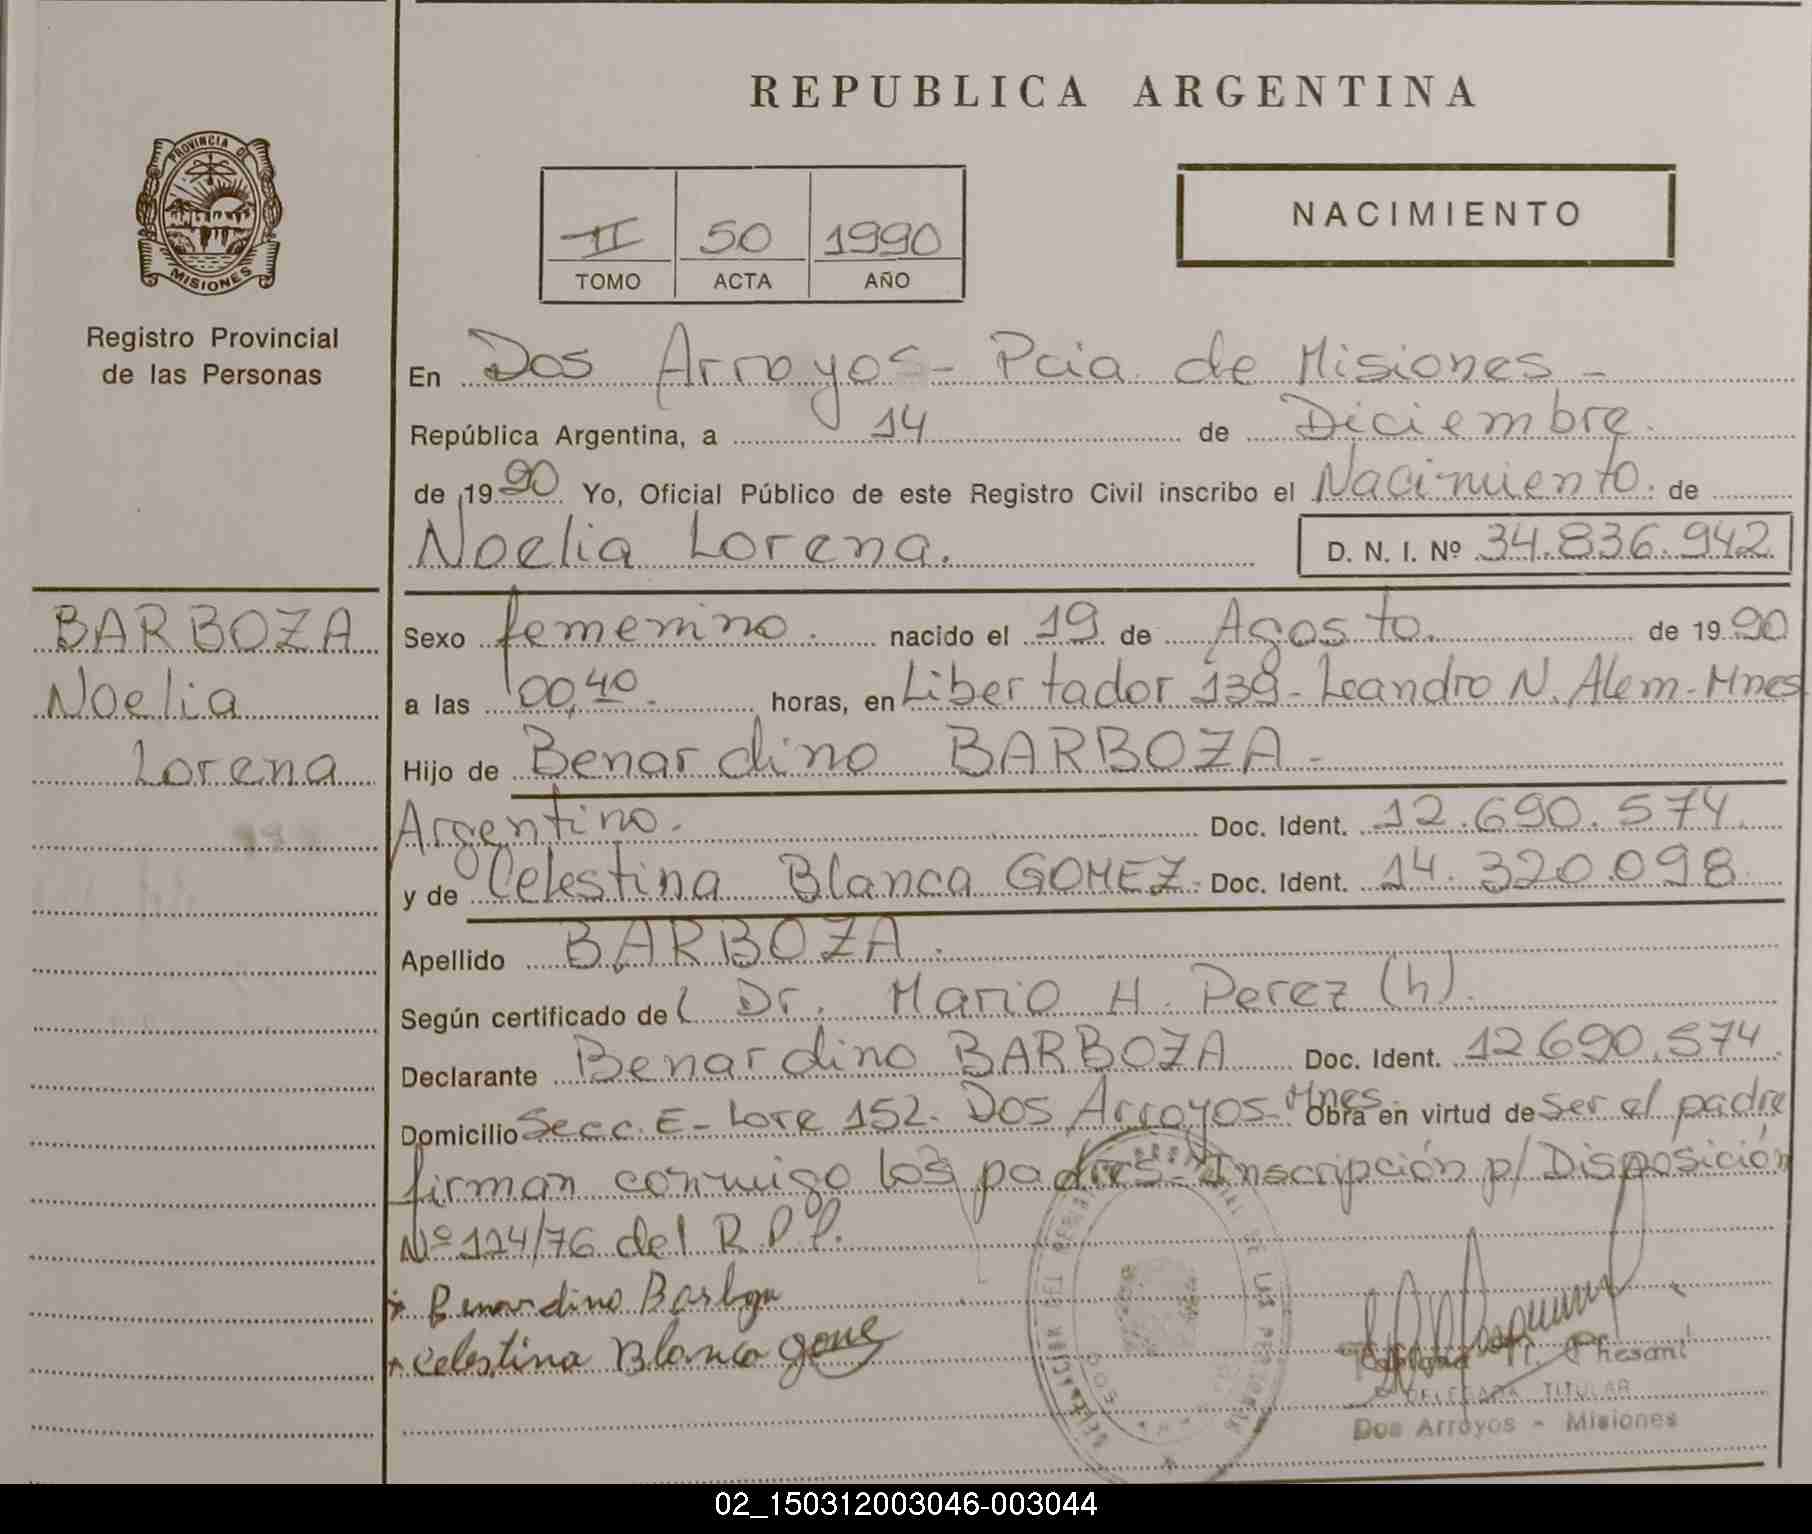 REPUBLICA ARGENTINA
PROVINCIA DE
MISIONES
Registro Provincial
de las Personas
II 50 1990
TOMO ACTA AÑO
NACIMIENTO
En Dos Arroyos - Pcia de Misiones -
República Argentina, a 14 de Diciembre.
de 1990 Yo, Oficial Público de este Registro Civil inscribo el Nacimiento. de
Noelia Lorena. D. N. I. Nº 34.836.942
BARBOZA
Noelia
Lorena
Sexo femenino. nacido el 19 de Agosto. de 1990
a las 00,40. horas, en Libertador 139 - Leandro N. Alem - Mnes
Hijo de Benardino BARBOZA -
Argentino. Doc. Ident. 12.690.574.
y de Celestina Blanca GOMEZ. Doc. Ident. 14.320.098
Apellido BARBOZA.
Según certificado de Dr. Mario H. Perez (h).
Declarante Benardino BARBOZA Doc. Ident. 12690.574.
Domicilio Secc. E - Lote 152. Dos Arroyos - Mnes. Obra en virtud de Ser el padre
firman conmigo los padres - Inscripción p/ Disposición
Nº 124/76 del R.P.P.
Benardino Barboza
Celestina Blanca Gome
DELEGADA TITULAR
Dos Arroyos - Misiones
02_150312003046-003044